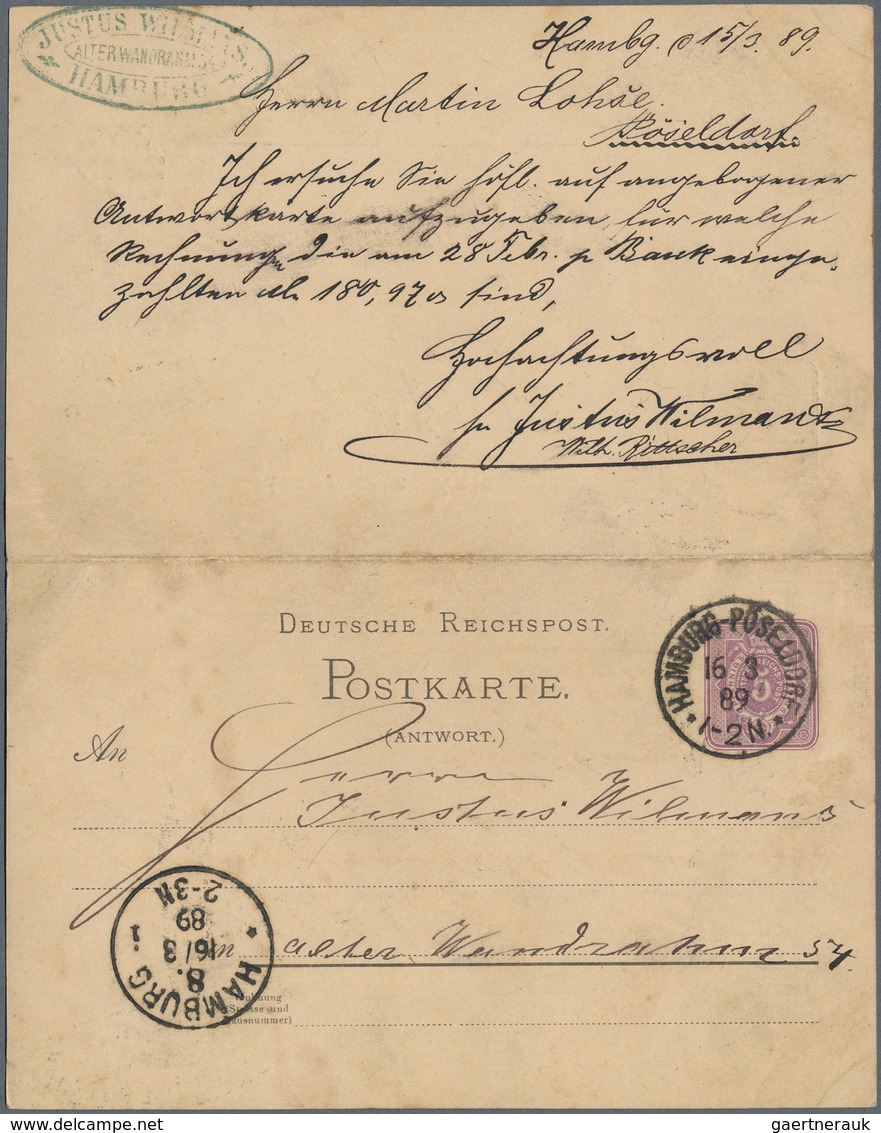 JUSTUS WILMANS.
ALTERWANDRAHM 54
HAMBURG
Hambg. d 15/3. 89.
Herrn Martin Lohse.
Pöseldorf.
Ich ersuche Sie höfl. auf angebogener
Antwortkarte aufzugeben, für welche
Rechnungen die am 28 Febr. p Bank einge-
zahlten M. 180,97 sind,
Hochachtungsvoll
Justus Wilmans
Wilh. Rittscher
DEUTSCHE REICHSPOST.
POSTKARTE.
(ANTWORT.)
HAMBURG-PÖSELDORF
16 3
89
1-2N.
5
An Herrn
Justus Wilmans
in alter Wandrahm 54.
Wohnung
(Strasse und
Hausnummer)
HAMBURG 1
8.
16/3
89
2-3N
gaertnerauk